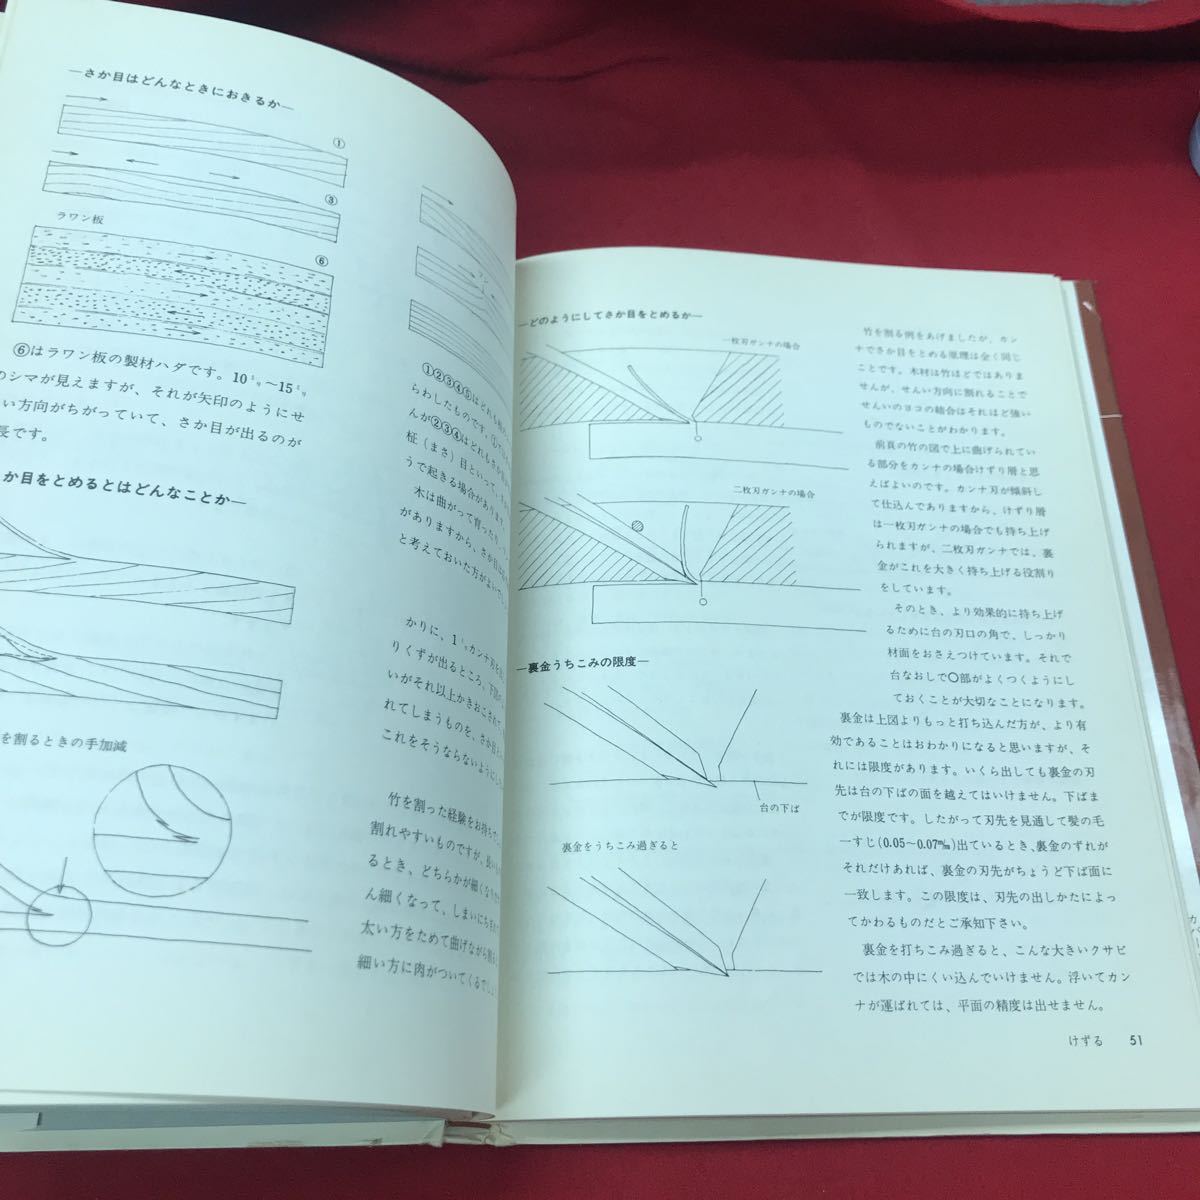 ―さか目はどんなときにおきるか―
①
③
ラワン板
⑥
⑥はラワン板の製材ハダです。10㍉〜15㍉
のシマが見えますが、それが矢印のようにせ
い方向がちがっていて、さか目が出るのが
長です。
か目をとめるとはどんなことか―
を割るときの手加減
①②③④⑤はどれも
らわしたものです。①
んが②③④はどれもさか
柾（まさ）目といって、
うで起きる場合があります。
木は曲がって育ったり
がありますから、さか目は
と考えておいた方がよいでし
かりに、1㍉カンナ刃を
りくずが出るところ、下図の
いがそれ以上かきおこされて
れてしまうものを、さか目と
これをそうならないようにし
竹を割った経験をお持ちで
割れやすいものですが、長い
るとき、どちらかが細くなり
ん細くなって、しまいにちぎれ
太い方をためて曲げながら割ると
細い方に肉がついてくるでしょ
―どのようにしてさか目をとめるか―
一枚刃ガンナの場合
二枚刃ガンナの場合
―裏金うちこみの限度―
台の下ば
裏金をうちこみ過ぎると
竹を割る例をあげましたが、カン
ナでさか目をとめる原理は全く同じ
ことです。木材は竹ほどではありま
せんが、せんい方向に割れることで
せんいのヨコの結合はそれほど強い
ものでないことがわかります。
前頁の竹の図で上に曲げられてい
る部分をカンナの場合けずり層と思
えばよいのです。カンナ刃が傾斜し
て仕込んでありますから、けずり層
は一枚刃ガンナの場合でも持ち上げ
られますが、二枚刃ガンナでは、裏
金がこれを大きく持ち上げる役割り
をしています。
そのとき、より効果的に持ち上げ
るために台の刃口の角で、しっかり
材面をおさえつけています。それで
台なおしで○部がよくつくようにし
ておくことが大切なことになります。
裏金は上図よりもっと打ち込んだ方が、より有
効であることはおわかりになると思いますが、そ
れには限度があります。いくら出しても裏金の刃
先は台の下ばの面を越えてはいけません。下ばま
でが限度です。したがって刃先を見通して髪の毛
一すじ(0.05〜0.07㎜)出ているとき、裏金のずれが
それだけあれば、裏金の刃先がちょうど下ば面に
一致します。この限度は、刃先の出しかたによっ
てかわるものだとご承知下さい。
裏金を打ちこみ過ぎると、こんな大きいクサビ
では木の中にくい込んでいけません。浮いてカン
ナが運ばれては、平面の精度は出せません。
けずる 51